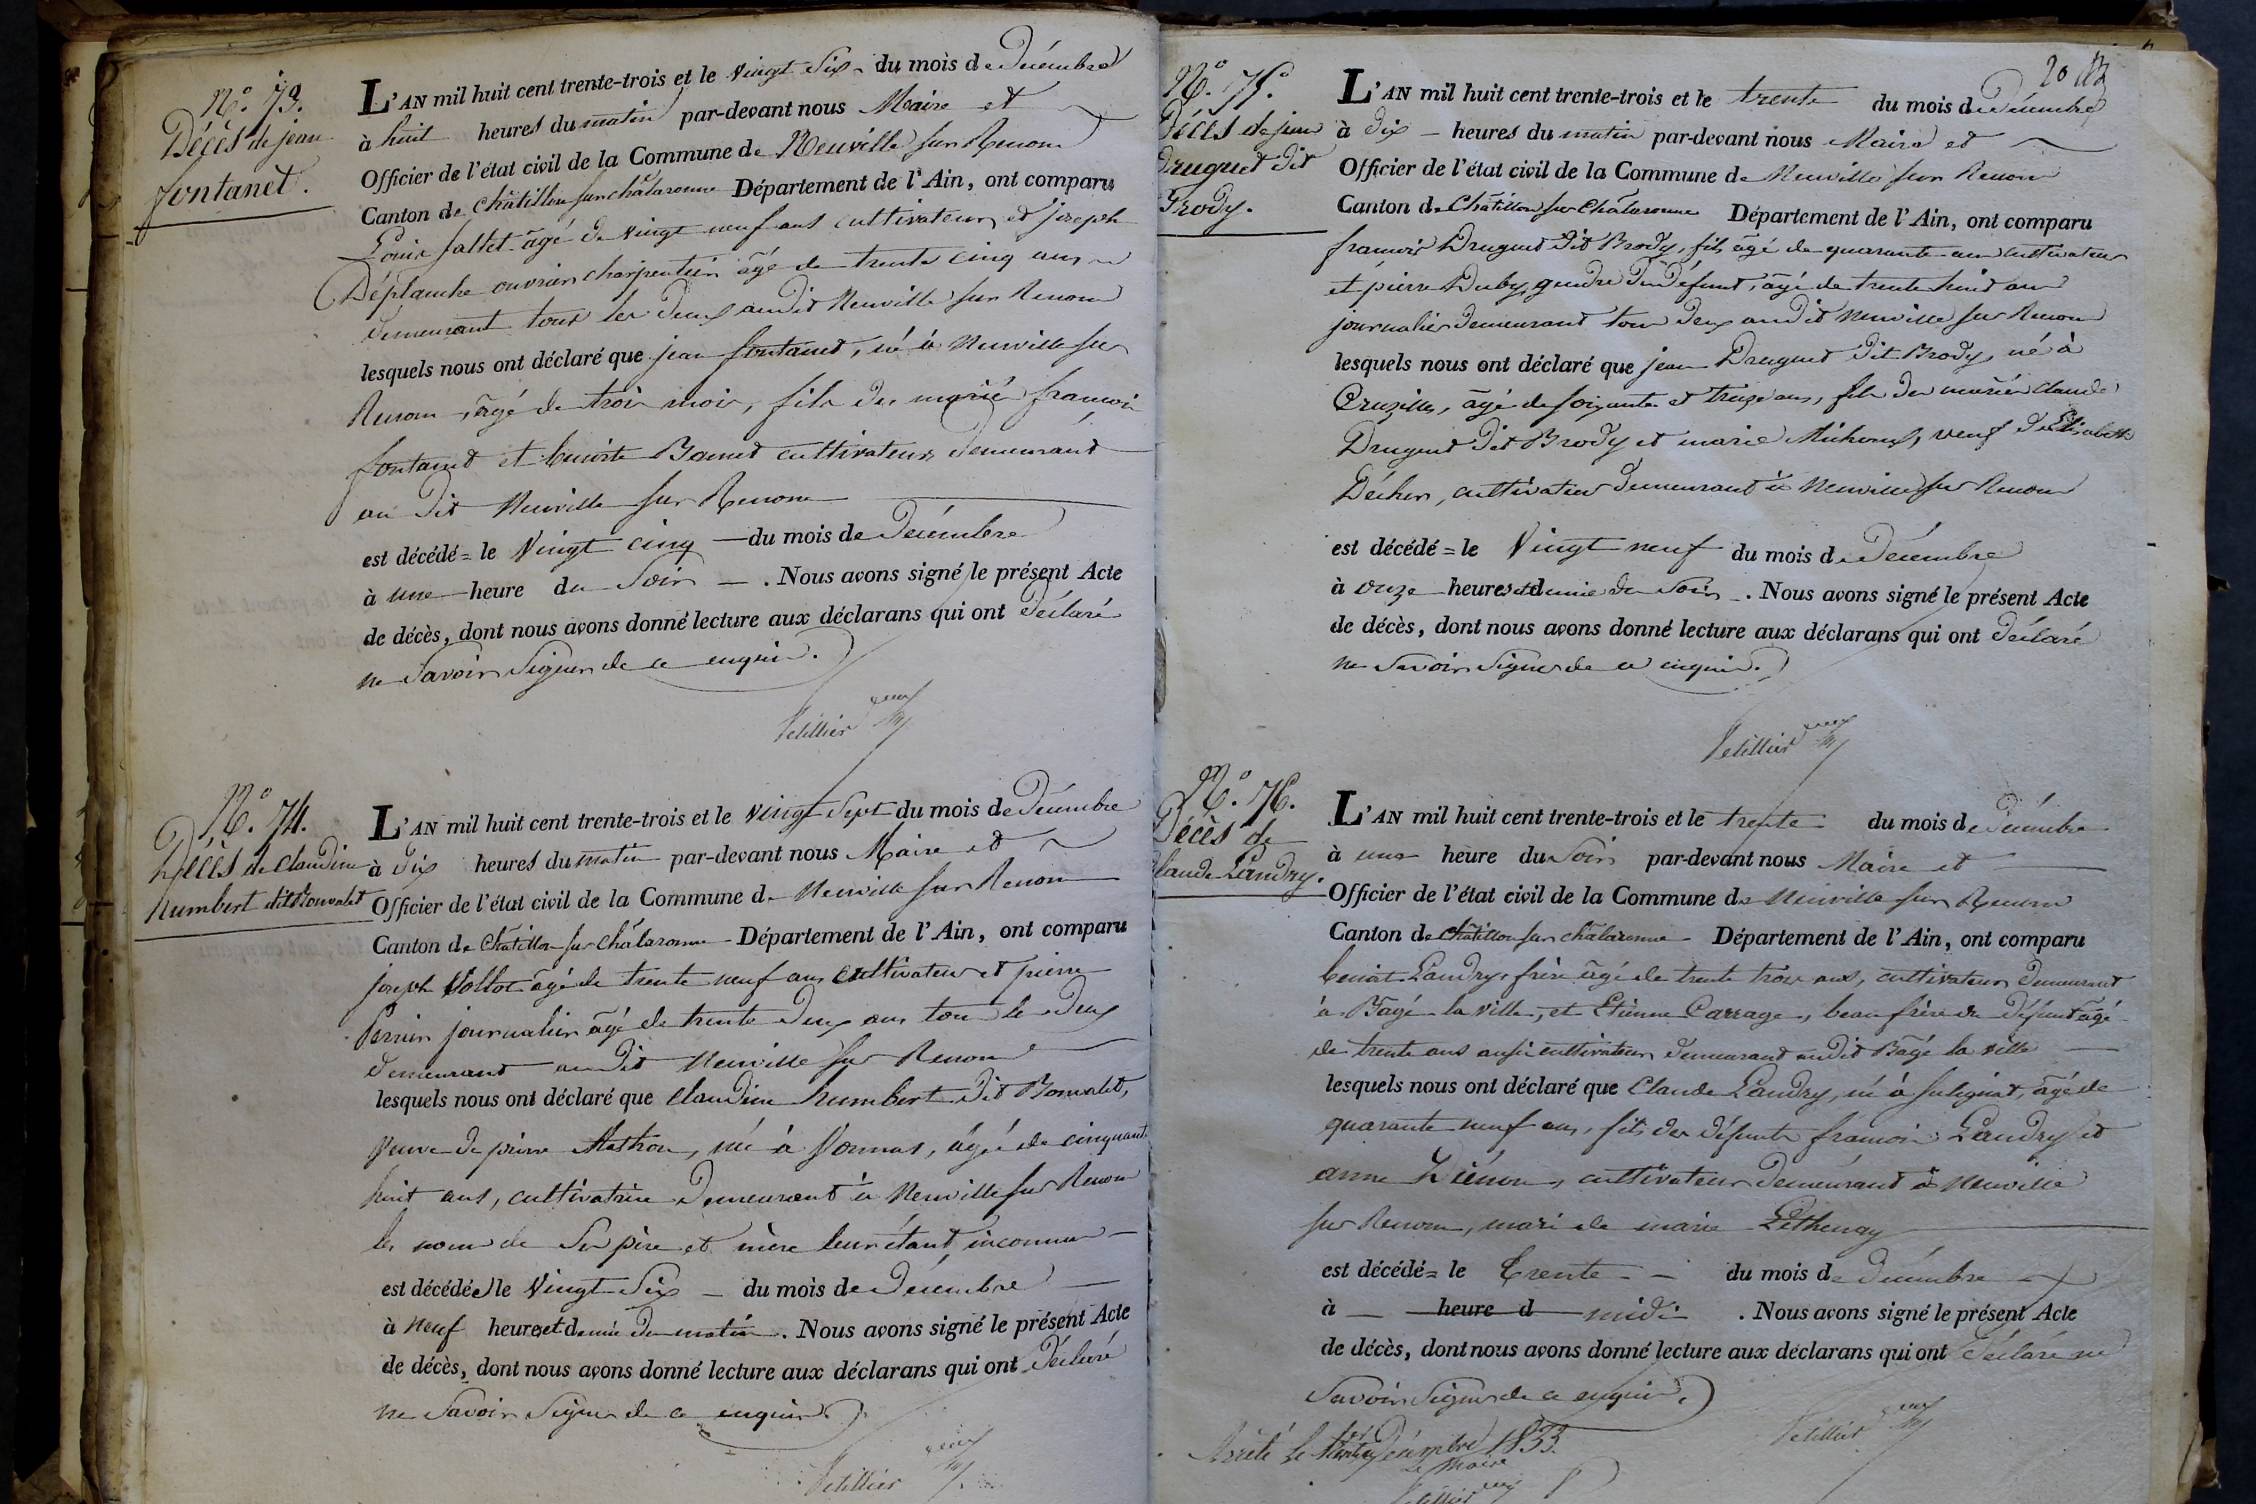 N.° 73.
Décès de jean
fontanet.
L'AN mil huit cent trente-trois et le vingt six du mois de Décembre
à huit heures du matin par-devant nous Maire et
Officier de l'état civil de la Commune de Neuville sur Renom
Canton de Châtillon sur Châlaronne Département de l'Ain, ont comparu
Louis Sallet âgé de vingt neuf ans cultivateur et joseph
Déplanche ouvrier charpentier âgé de trente cinq ans
demeurant tous les deux audit Neuville sur Renom
lesquels nous ont déclaré que jean fontanet, né à Neuville sur
Renom, âgé de trois mois, fils des mariés francois
fontanet et benoite Bonnet cultivateurs demeurant
au dit Neuville sur Renom
est décédé = le Vingt cinq du mois de Décembre
à une heure du Soir. Nous avons signé le présent Acte
de décès, dont nous avons donné lecture aux déclarans qui ont Déclaré
ne Savoir Signer de ce enquis.
Petillier
N.° 74.
Décès de claudine
humbert dit Bonvalet
L'AN mil huit cent trente-trois et le vingt Sept du mois de Décembre
à Dix heures du matin par-devant nous Maire et
Officier de l'état civil de la Commune de Neuville sur Renom
Canton de Châtillon sur Châlaronne Département de l'Ain, ont comparu
joseph Vollot âgé de trente neuf ans cultivateur et pierre
Perrin journalier âgé de trente Deux ans tous le Deux
demeurant audit Neuville sur Renom
lesquels nous ont déclaré que claudine humbert dit Bonvalet,
veuve de pierre Mathon, née à Vonnas, âgée de cinquante
huit ans, cultivatrice Demeurant à Neuville sur Renom
les nom de Ses père et mère leur étant inconnus
est décédée le Vingt Six du mois de Décembre
à neuf heures et demie du matin. Nous avons signé le présent Acte
de décès, dont nous avons donné lecture aux déclarans qui ont Déclaré
ne Savoir Signer de ce enquis.
Petillier
20
N.° 75.
Décès de jean
Druguet dit
Brody.
L'AN mil huit cent trente-trois et le trente du mois de Décembre
à Dix heures du matin par-devant nous Maire et
Officier de l'état civil de la Commune de Neuville sur Renom
Canton de Châtillon sur Châlaronne Département de l'Ain, ont comparu
francois Druguet Dit Brody, fils âgé de quarante ans cultivateur
et pierre Duby, gendre Du Défunt, âgé de trente huit ans
journalier demeurant tous Deux audit Neuville sur Renom
lesquels nous ont déclaré que jean Druguet Dit Brody, né à
Cruzilles, âgé de Soixante et treize ans, fils des mariés claude
Druguet Dit Brody et marie Michoud, veuf D'Elisabeth
Décher, cultivateur Demeurant à Neuville sur Renom
est décédé = le Vingt neuf du mois de Décembre
à onze heures et demie du Soir. Nous avons signé le présent Acte
de décès, dont nous avons donné lecture aux déclarans qui ont Déclaré
ne Savoir Signer de ce enquis.
Petillier
N.° 76.
Décès de
Claude Landry.
L'AN mil huit cent trente-trois et le trente du mois de Décembre
à une heure du Soir par-devant nous Maire et
Officier de l'état civil de la Commune de Neuville sur Renom
Canton de Châtillon sur Châlaronne Département de l'Ain, ont comparu
benoit Landry, frère âgé de trente trois ans, cultivateur Demeurant
à Bâgé la ville, et Etienne Carrage, beau frère du Défunt âgé
de trente ans aussi cultivateur demeurant audit Bâgé la ville
lesquels nous ont déclaré que Claude Landry, né à Sulignat, âgé de
quarante neuf ans, fils des défunts francois Landry et
anne Diénon, cultivateur Demeurant à Neuville
sur Renom, mari de marie Péthenay
est décédé = le Trente du mois de Décembre
à heure d midi. Nous avons signé le présent Acte
de décès, dont nous avons donné lecture aux déclarans qui ont déclaré ne
Savoir Signer de ce enquis.
Petillier
Arrêté le Décembre 1833.
Le Maire
Petillier